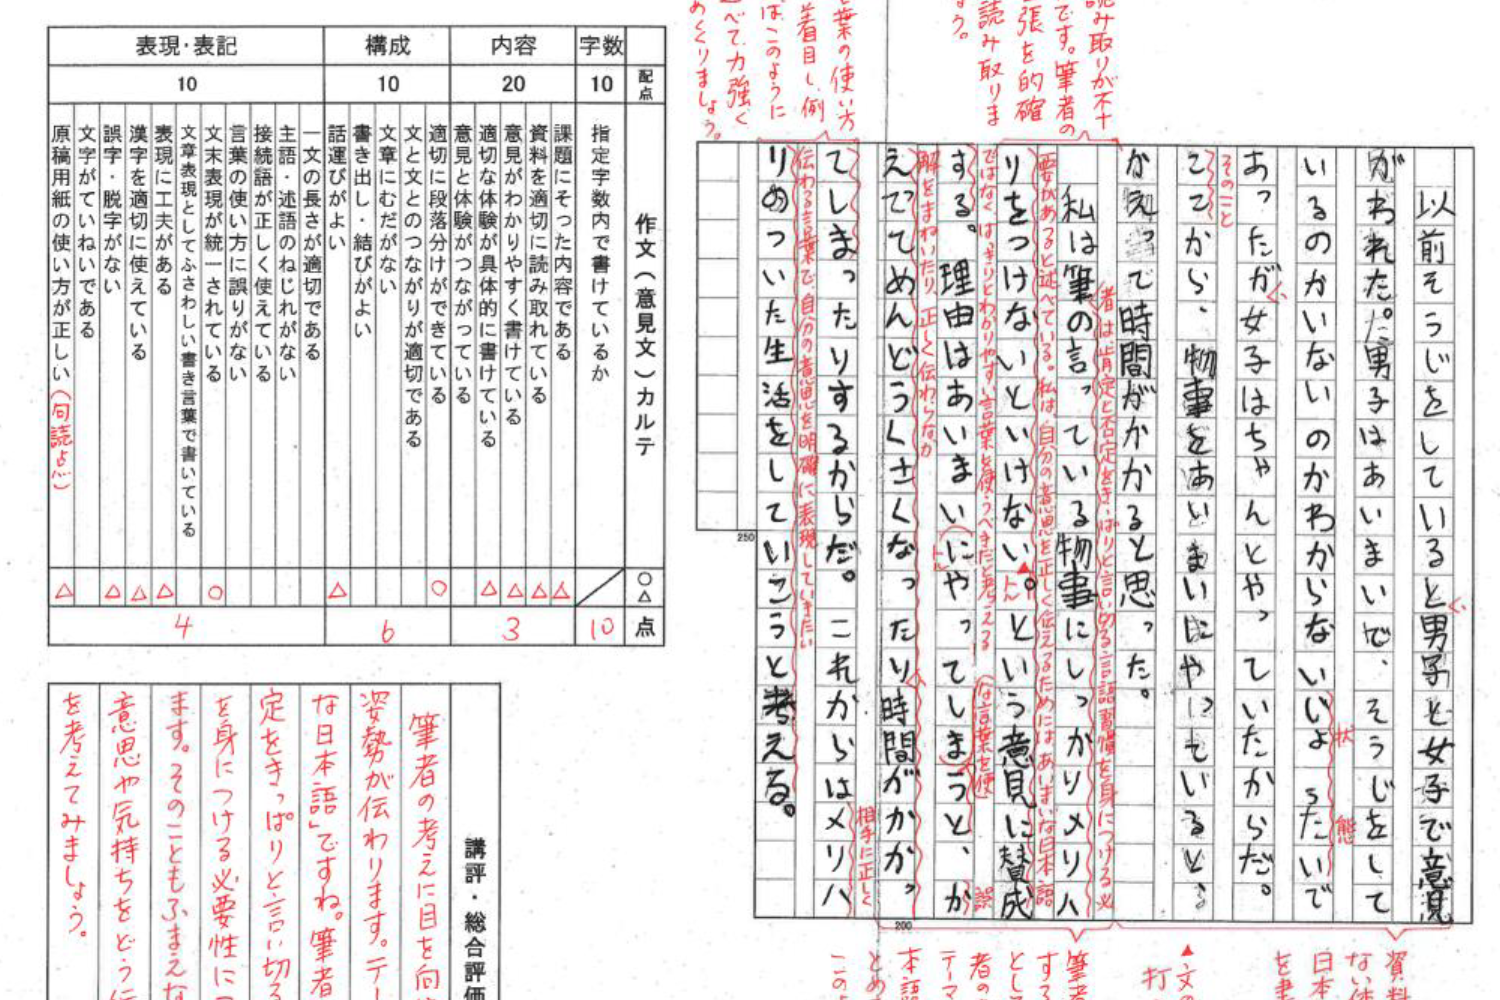 読み取りが不十
です。筆者の
張を的確
読み取りま
ょう。
葉の使い方
着目し、例
はこのように
べて力強く
めくくりましょう。
以前そうじをしていると男子と女子で意見
がわれた。男子はあいまいで、そうじをして
いるのかいないのかわからないじょうたいで
あったが女子はちゃんとやっていたからだ。
ことから、物事をあいまいにやっていると、
かえって時間がかかると思った。
私は筆の言っている物事にしっかりメリハ
リをつけないといけない。という意見に賛成
する。理由はあいまいにやってしまうと、か
えってめんどうくさくなったり時間がかかっ
てしまったりするからだ。これからはメリハ
りのついた生活をしていこうと考える。
く、
状
態
く、
そのこと
者は、肯定と否定をきっぱりと言い切る言語習慣を身につける必
要があると述べている。私は、自分の意思を正しく伝えるためには、あいまいな日本語
ではなく、はっきりとわかりやすい言葉を使うべきだと考える
な言葉を使
誤
解をまねいたり、正しく伝わらなか
相手に正しく
伝わる言葉で、自分の意思を明確に表現していきたい
200
250
資料
ない体
日本
を書
▲文の
打
筆者
する
とし
者の
テーマ
本語
とめ
この
作文（意見文）カルテ
配点
○△
点
字数
10
指定字数内で書けているか
10
内容
20
課題にそった内容である
△
資料を適切に読み取れている
△
意見がわかりやすく書けている
△
適切な体験が具体的に書けている
△
意見と体験がつながっている
3
構成
10
適切に段落分けができている
○
文と文とのつながりが適切である
文章にむだがない
書き出し・結びがよい
話運びがよい
△
6
表現・表記
10
一文の長さが適切である
主語・述語のねじれがない
接続語が正しく使えている
言葉の使い方に誤りがない
文末表現が統一されている
○
文章表現としてふさわしい書き言葉で書いている
表現に工夫がある
△
漢字を適切に使えている
△
誤字・脱字がない
△
文字がていねいである
原稿用紙の使い方が正しい（句読点）
△
4
講評・総合評価
筆者の考えに目を向
姿勢が伝わります。テー
な日本語」ですね。筆者
定をきっぱりと言い切る
を身につける必要性につ
ます。そのこともふまえな
意思や気持ちをどう伝
を考えてみましょう。